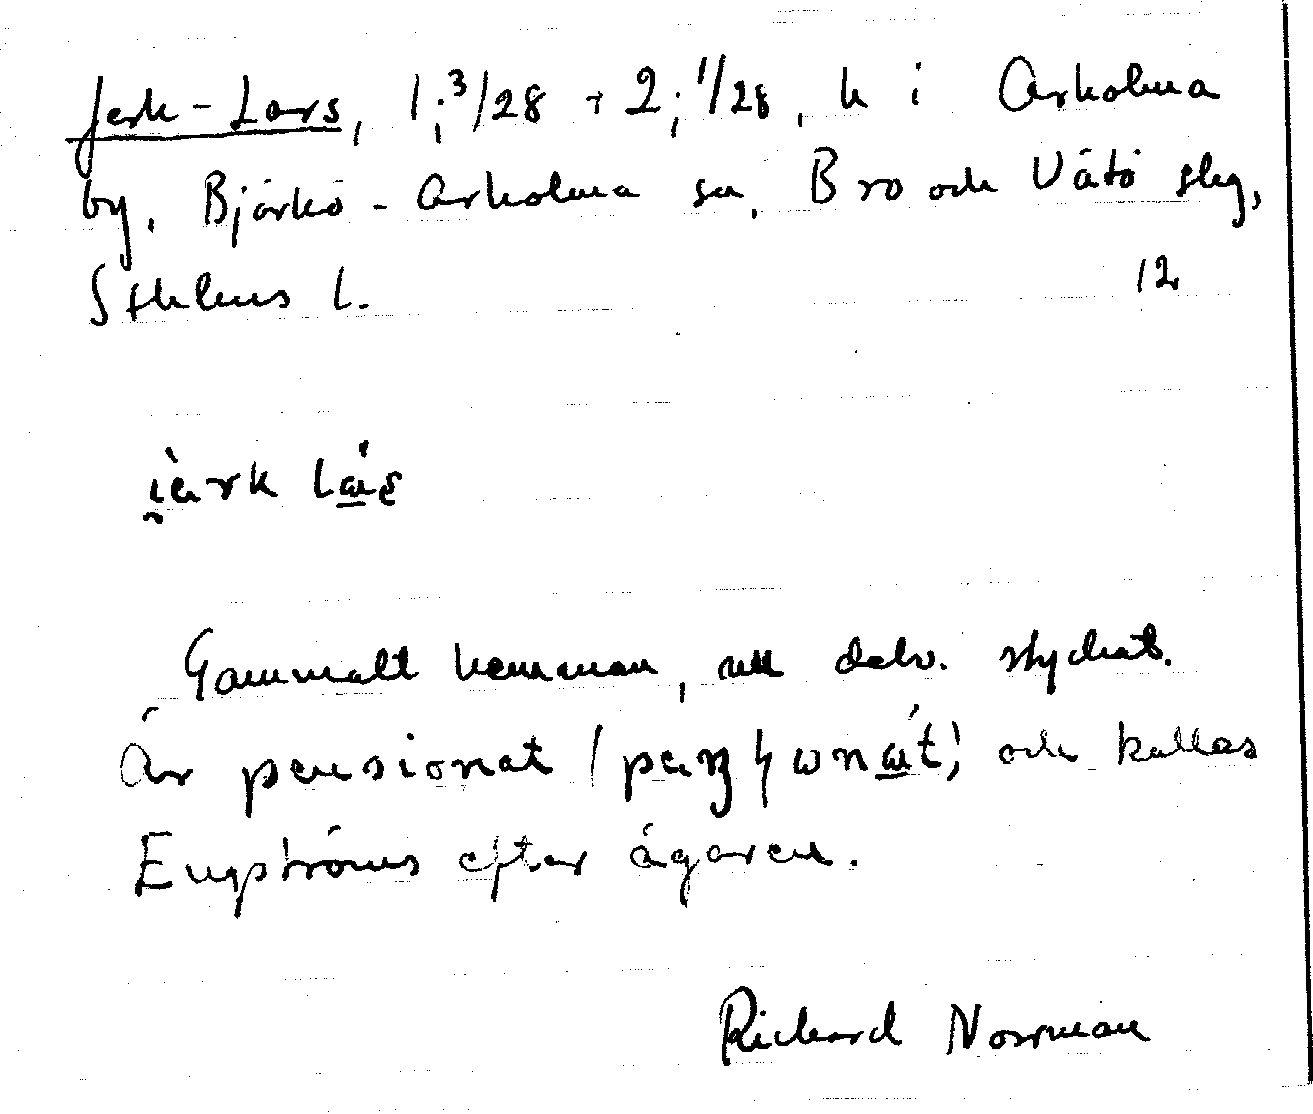 Jerk-Lars, 1:3/28 + 2:1/28, h i Arholma
by, Björkö-Arholma sn, Bro och Vätö slg,
Sthlms l. 12
Gammalt hemman, nu delv. styckat.
Är pensionat och kallas
Engströms efter ägaren.
Richard Norrman